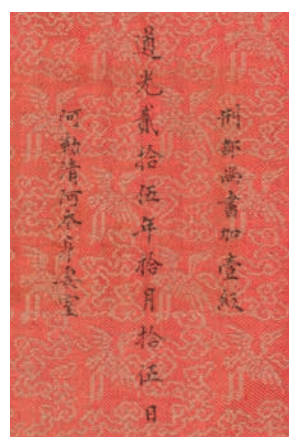 刑部尚書加壹級
道光貳拾伍年拾月拾伍日
阿勒清阿本身妻室